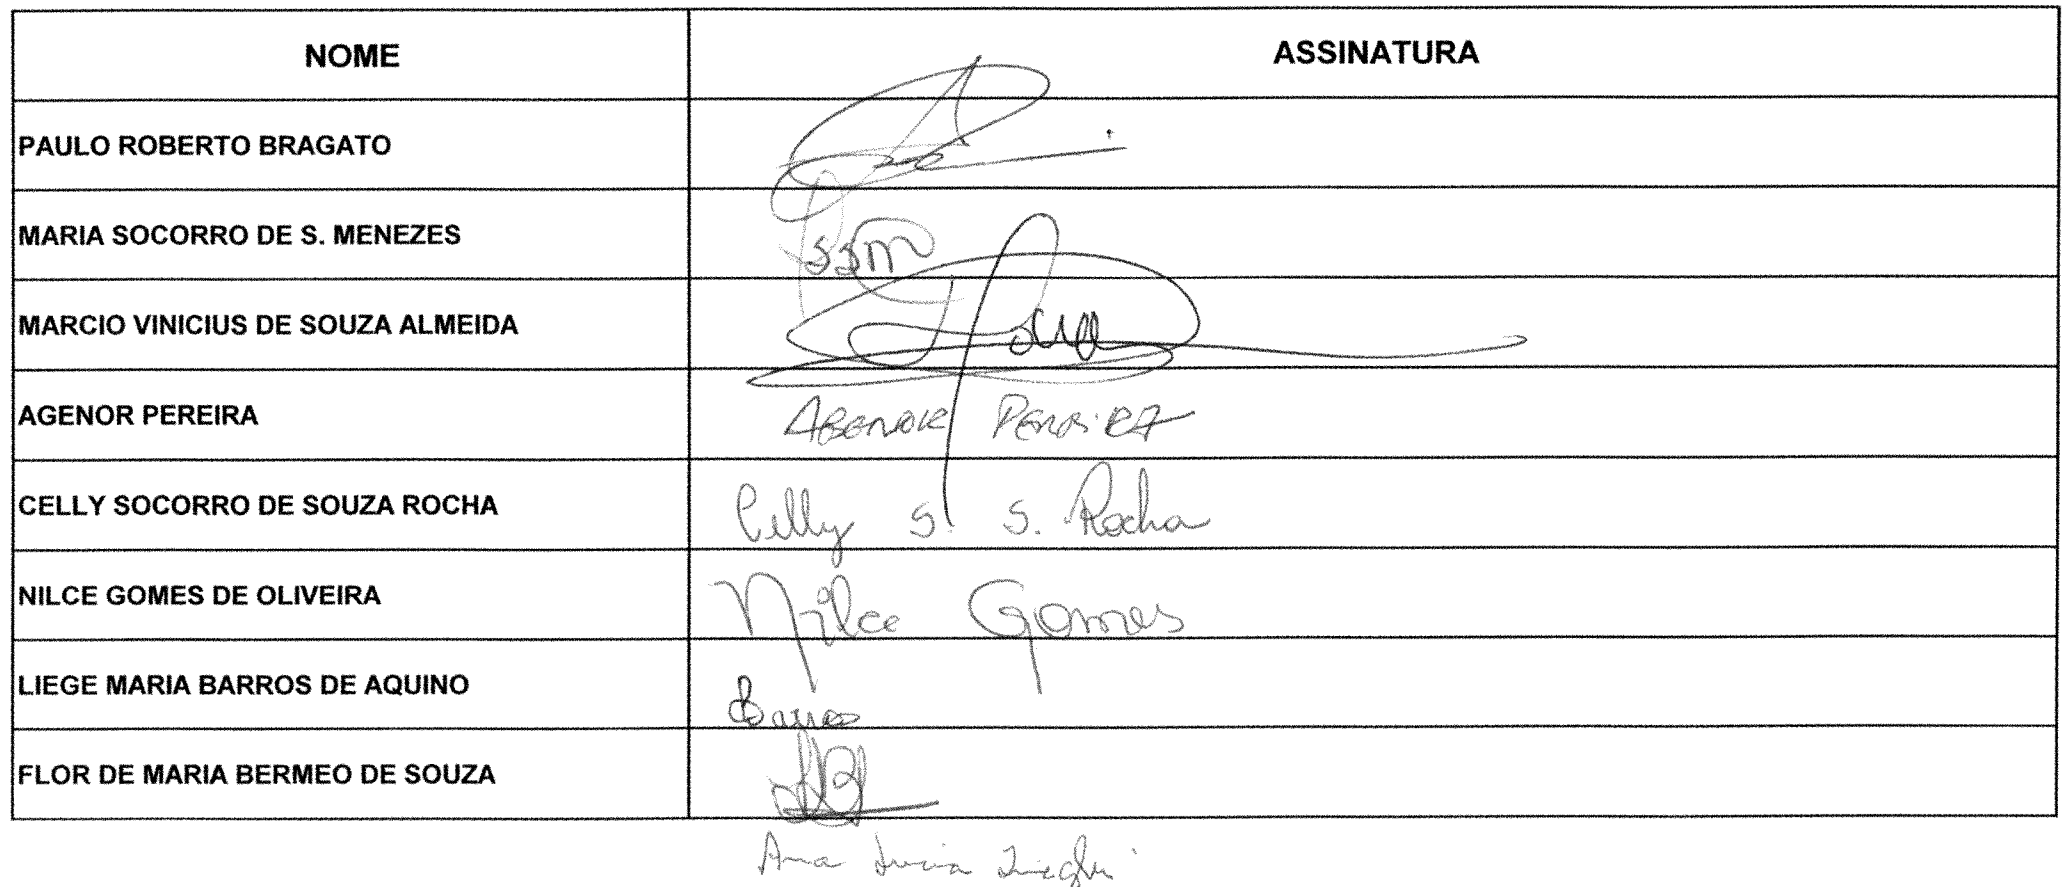 NOME ASSINATURA
PAULO ROBERTO BRAGATO
MARIA SOCORRO DE S. MENEZES SSM
MARCIO VINICIUS DE SOUZA ALMEIDA
AGENOR PEREIRA AGENOR PEREIRA
CELLY SOCORRO DE SOUZA ROCHA Celly S. S. Rocha
NILCE GOMES DE OLIVEIRA Nilce Gomes
LIEGE MARIA BARROS DE AQUINO Barros
FLOR DE MARIA BERMEO DE SOUZA
Ana Lucia